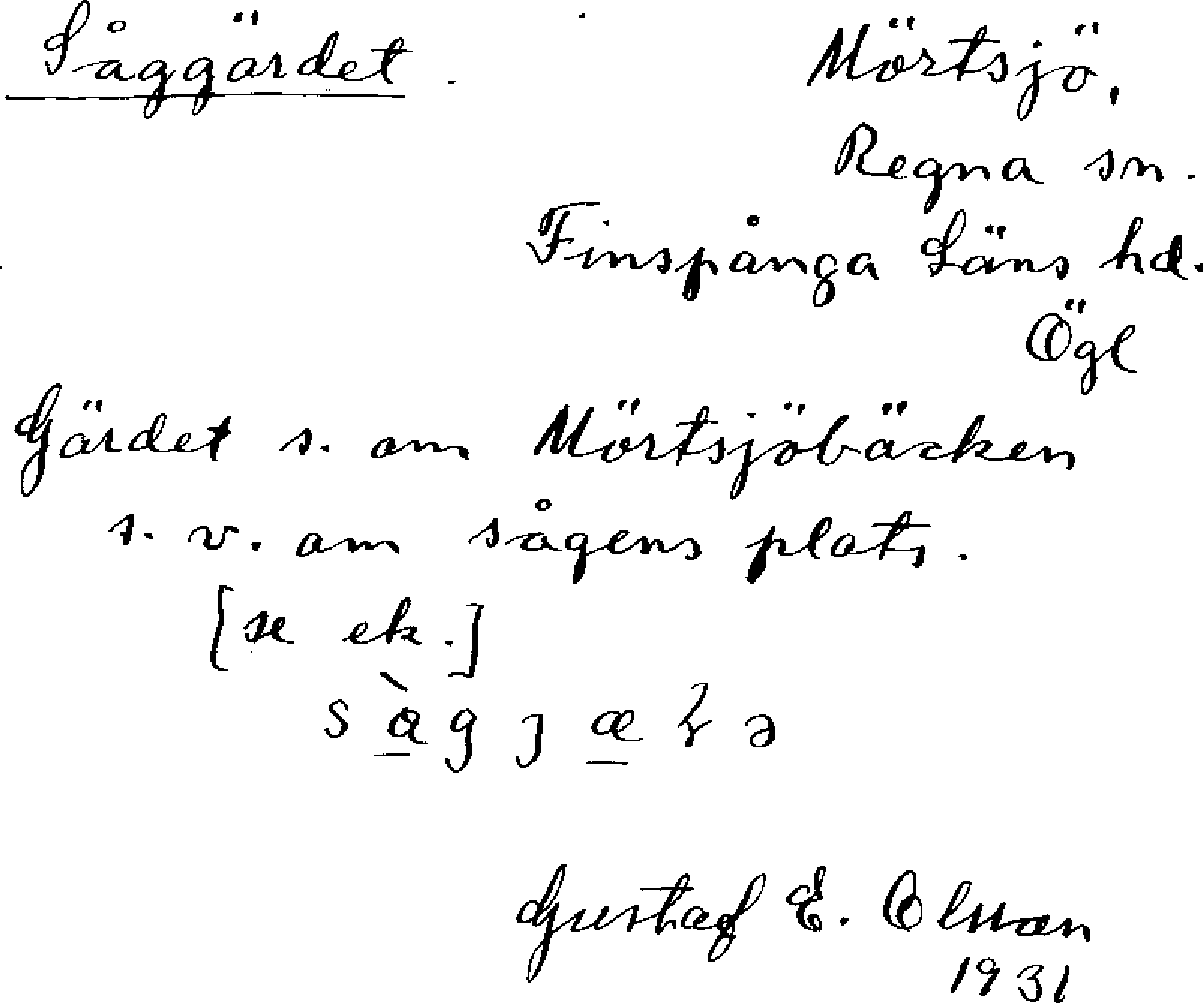 Såggärdet. Mörtsjö,
Regna sn.
Finspånga Läns hd.
Ögl
Gärdet s. om Mörtsjöbäcken
s. v. om sågens plats.
[se ek.]
Gustaf E. Olsson
1931